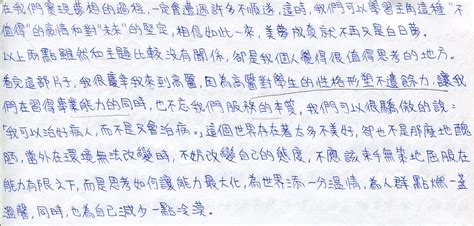 在我們實現夢想的過程,一定會遭遇許多不順遂,這時,我們可以學習主角這種"不
值得"的豁情和對"未來"的堅定,相信如此一來,美夢成真就不再只是白日夢。
以上兩點雖然和主題比較沒有關係,卻是我個人覺得很值得思考的地方。
看完這部片子,我很慶幸我來到高醫,因為高醫對學生的性格形塑不遺餘力,讓我
們在習得專業能力的同時,也不忘我們服務的本質,我們可以很驕傲的說:
「我可以治好病人,而不是只會治病。」這個世界存在著太多不美好,卻也不是那麼地醜
陋,當外在環境無法改變時,不妨改變自己的態度,不應該束手無策地屈服在
能力有限之下,而是思考如何讓能力最大化,為世界添一分溫情,為人群點燃一盞
溫馨,同時,也為自己減少一點冷漠。